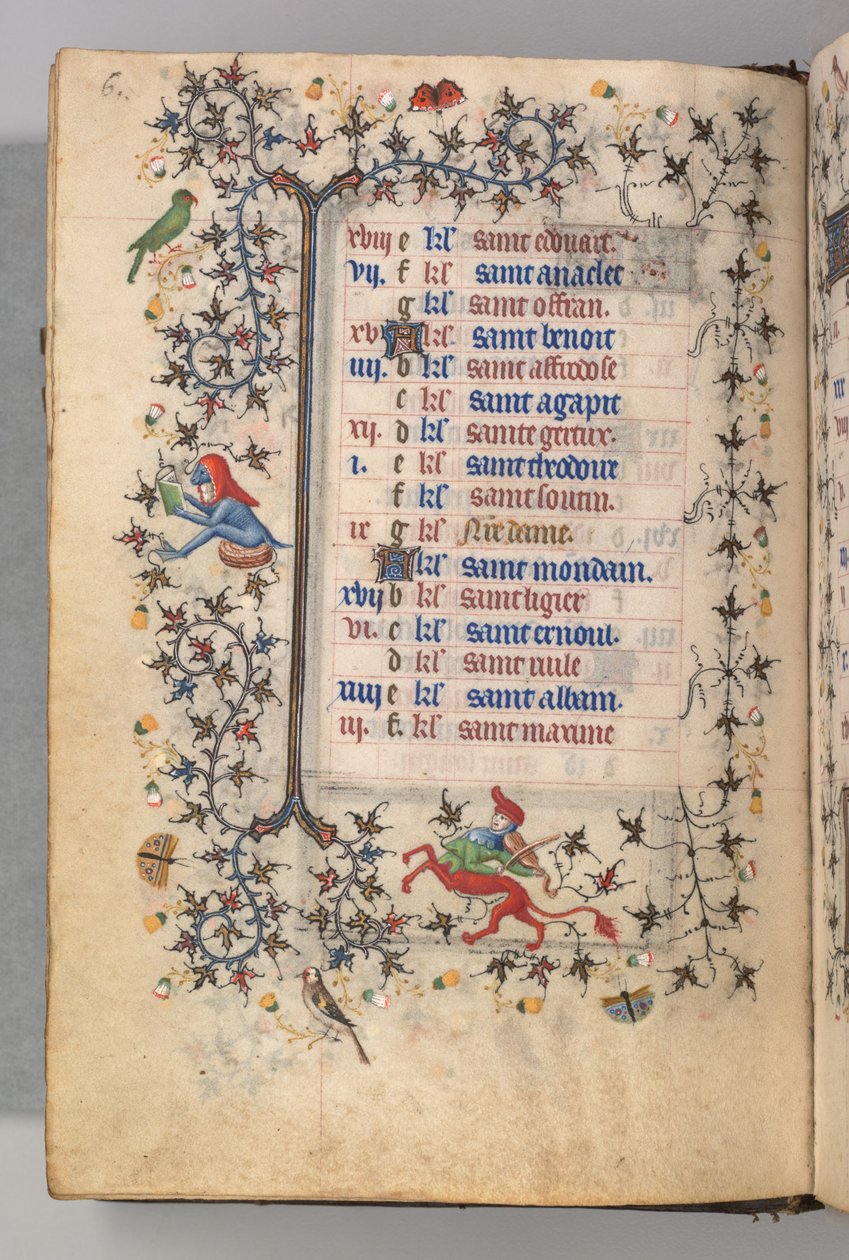 6.
xviij e kl saint edouart.
vij. f kl saint anaclet
g kl saint offran.
xv. A kl. saint benoit
iiij. b kl saint affrodose
c kl saint agapit
xij. d kl sainte gertrux.
i. e kl saint theodoire
f kl saint soutin.
ix g kl Nre dame.
A kl saint mondain.
xvij b kl saint ligier
vi. c kl saint ernoul.
d kl saint rule
xiiij e kl saint albain.
iij. f. kl saint maxime